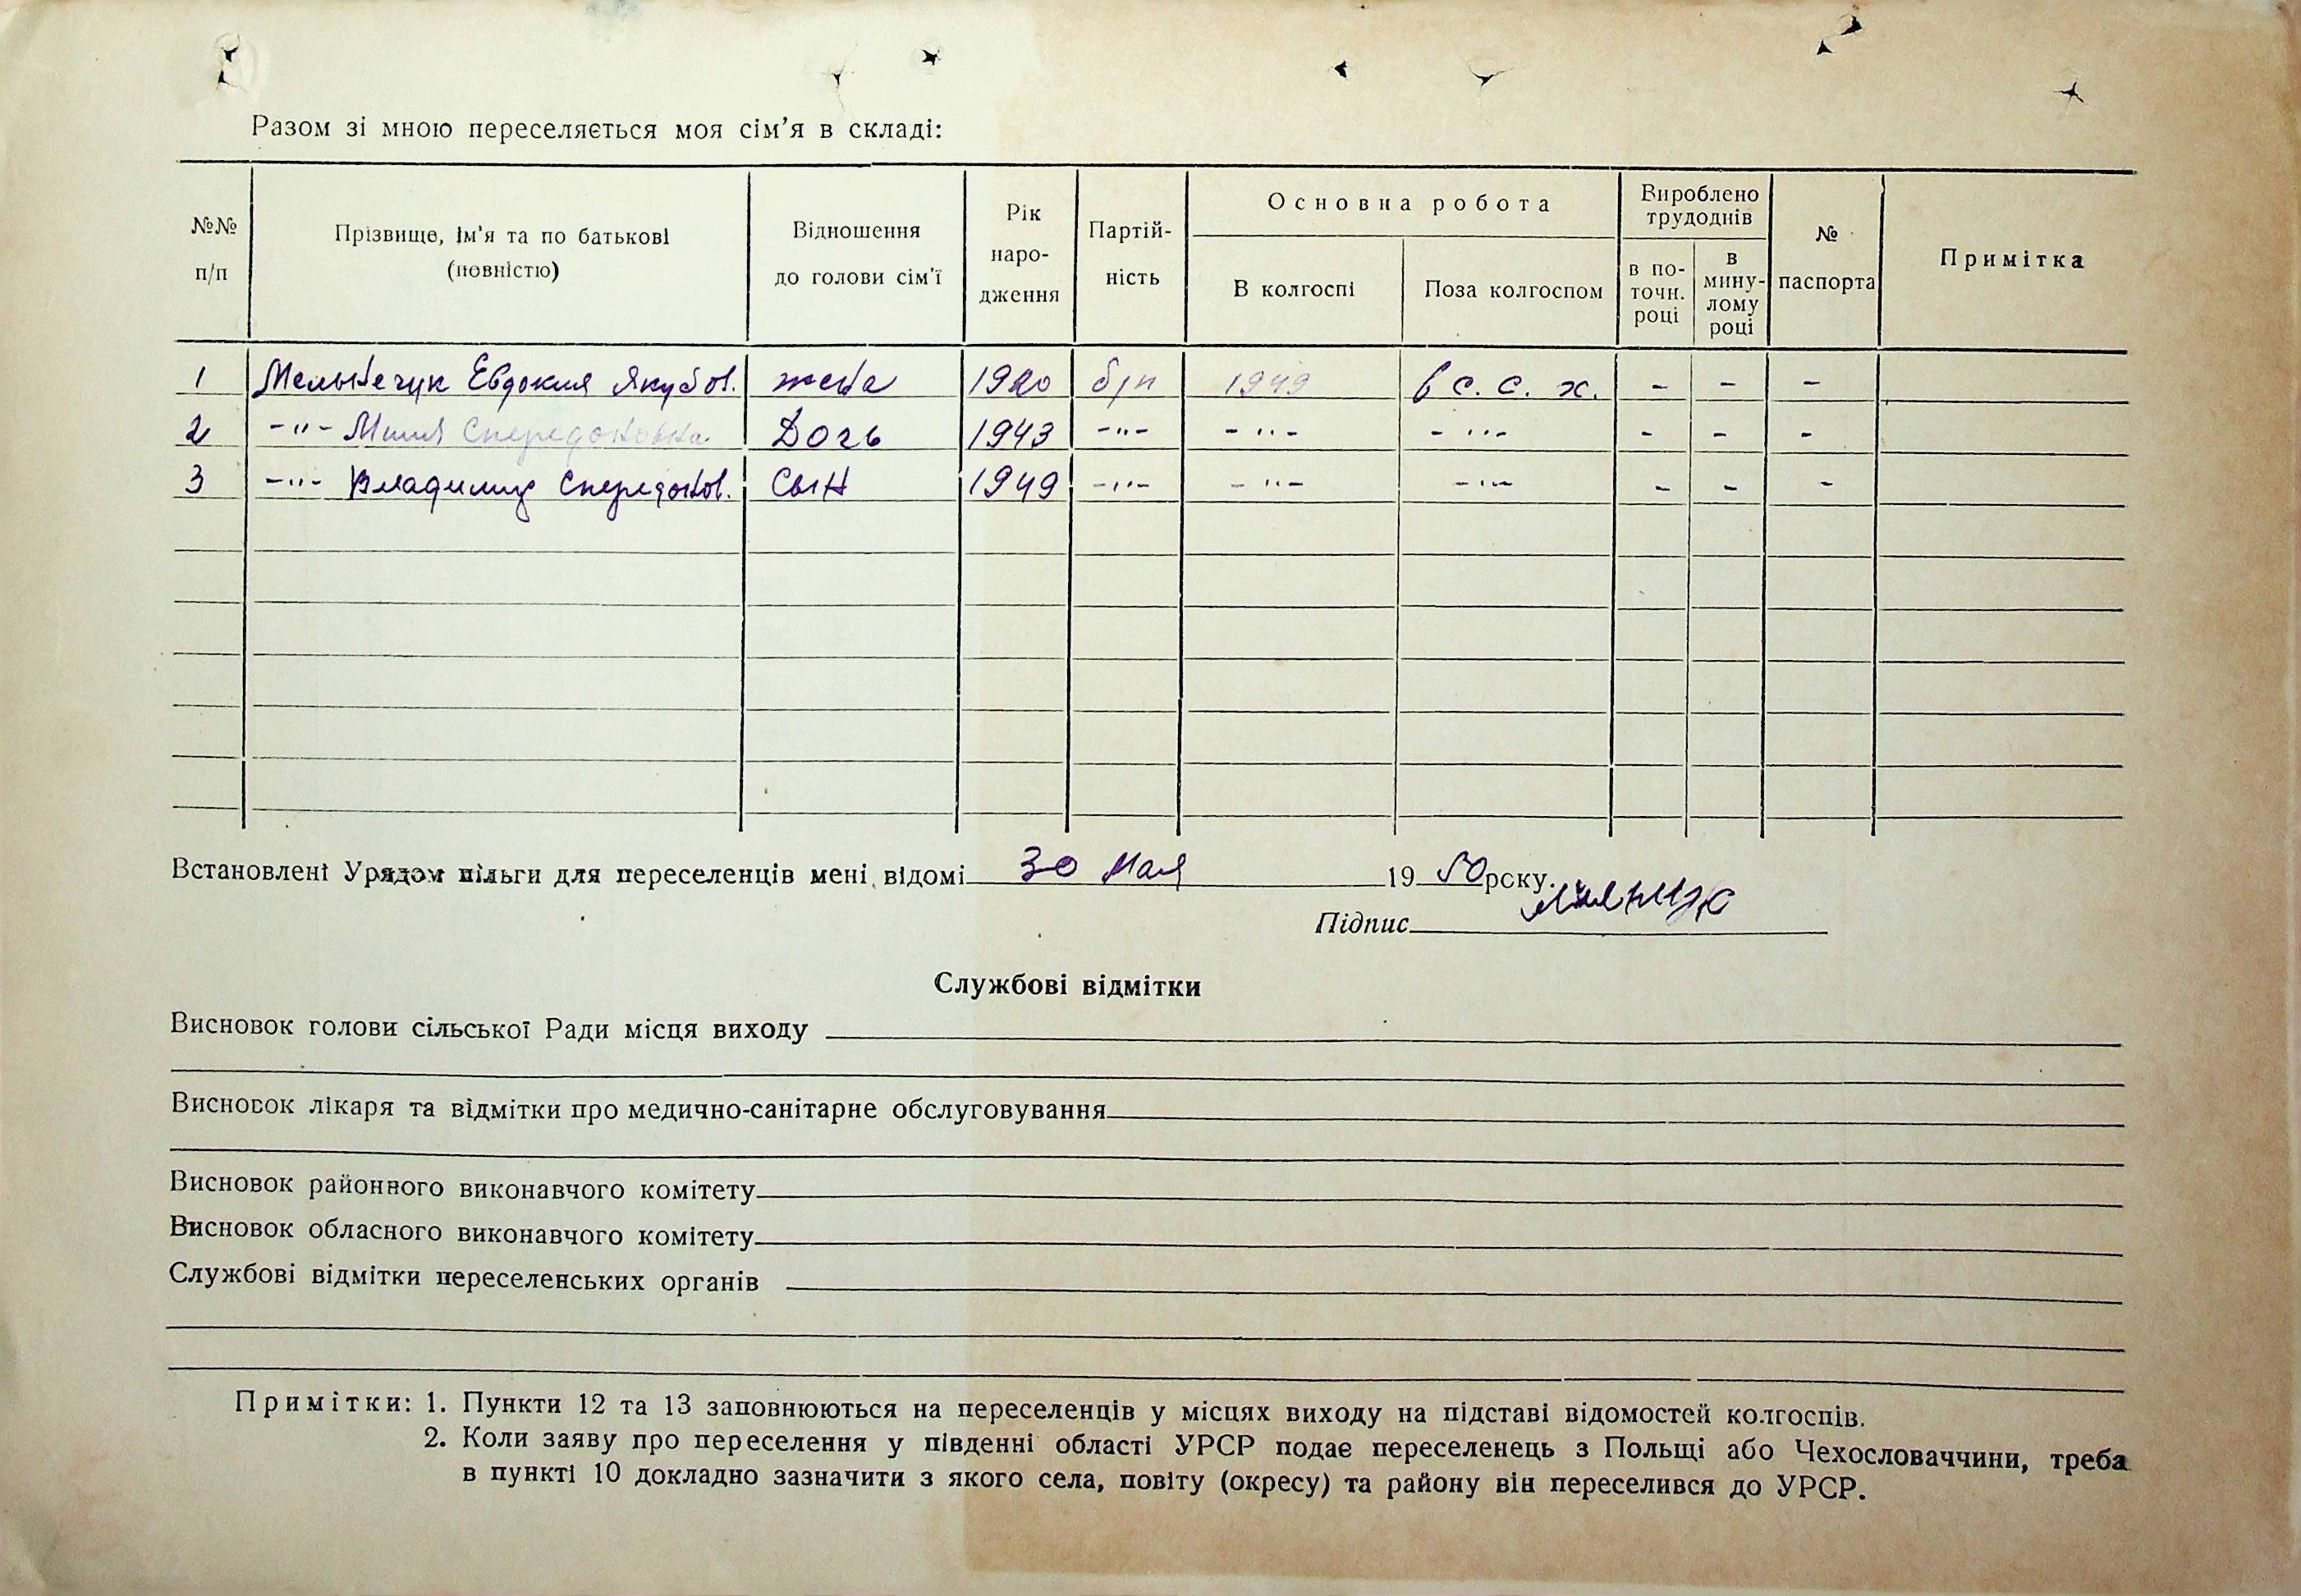 Разом зі мною переселяється моя сім'я в складі:
№№ п/п
Прізвище, ім'я та по батькові (повністю)
Відношення до голови сім'ї
Рік народження
Партійність
Основна робота
В колгоспі
Поза колгоспом
Вироблено трудоднів
в поточн. році
в минулому році
№ паспорта
Примітка
1 Мельничук Евдокия Якубов. жена 1920 б/п 1949 в с. с. х. - - -
2 -"- Спередоновна Дочь 1943 -"- -"- -"- - - -
3 -"- Владимир Спередонов. Сын 1949 -"- -"- -"- - - -
Встановлені Урядом пільги для переселенців мені відомі 30 мая 1950 року.
Підпис
Службові відмітки
Висновок голови сільської Ради місця виходу
Висновок лікаря та відмітки про медично-санітарне обслуговування
Висновок районного виконавчого комітету
Висновок обласного виконавчого комітету
Службові відмітки переселенських органів
Примітки: 1. Пункти 12 та 13 заповнюються на переселенців у місцях виходу на підставі відомостей колгоспів.
2. Коли заяву про переселення у південні області УРСР подає переселенець з Польщі або Чехословаччини, треба
в пункті 10 докладно зазначити з якого села, повіту (окресу) та району він переселився до УРСР.